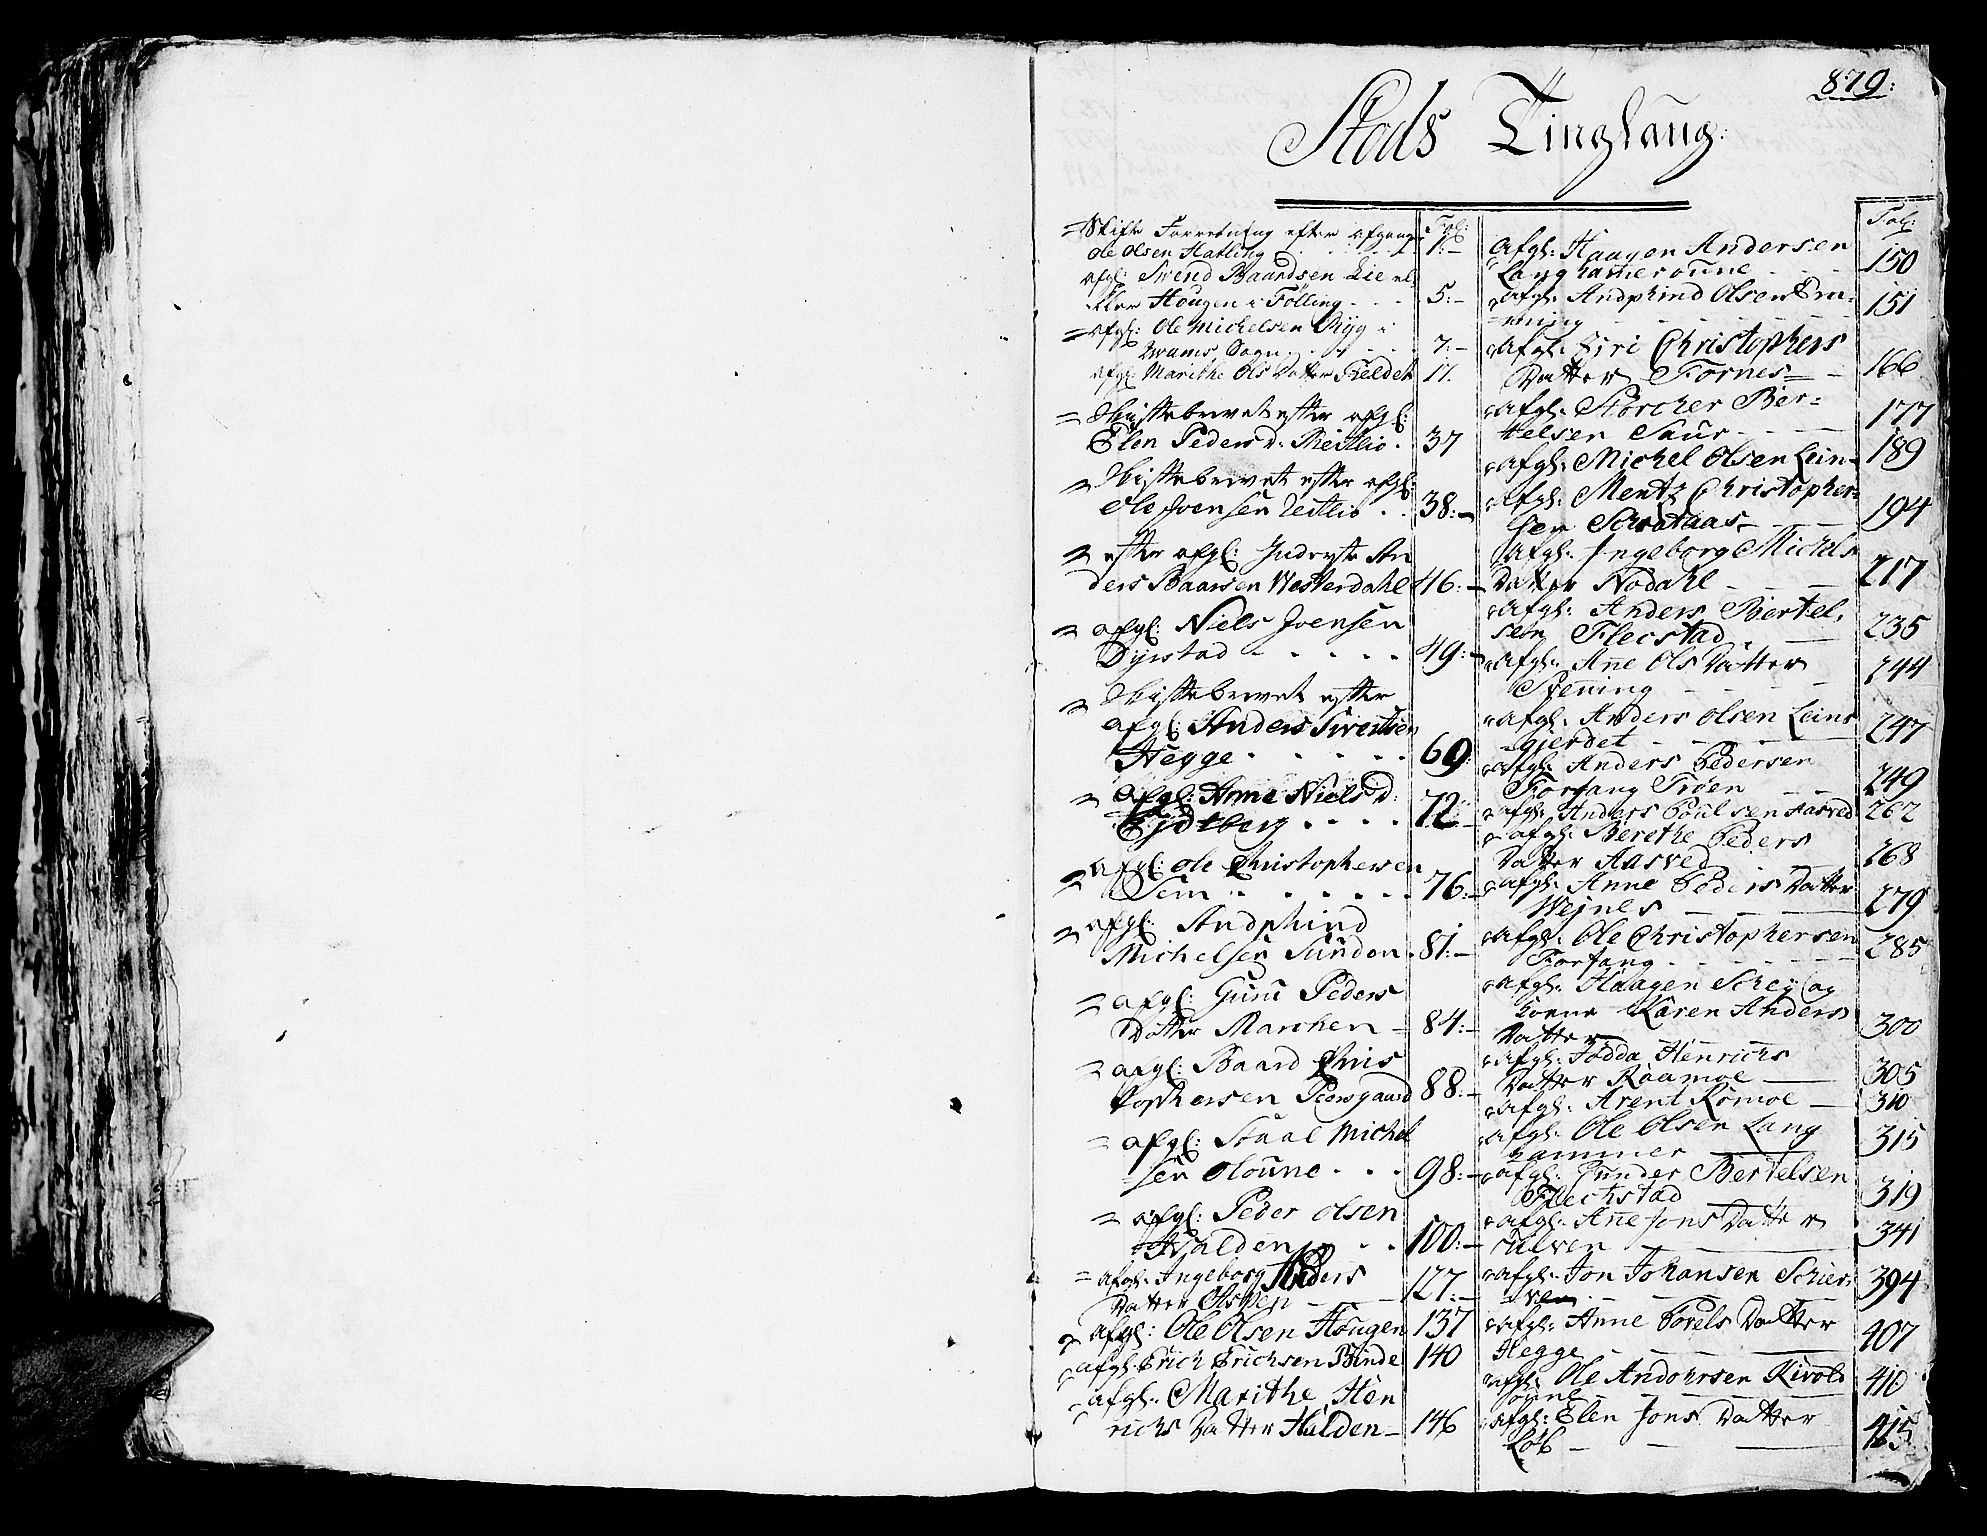 879:
Stods Tinglaug:
Skifte Forretning efter afgang: Fol:
Ole Olsen Hatling 1:
afgl: Svend Baardsen Lie el
Hougen i Følling 5:
afgl: Ole Michelsen Ryg i
Qvams Sogn 7:
afgl: Marithe Ols Datter Fieldet 11.
Skiftebrevet efter afgl:
Elen Peders d: Reitlio 37
Skiftebrevet efter afgl:
Ole Joensen Reitlio 38:
efter afgl: An
ders Baarsen Westerdahl 46:
afgl: Niels Joensen
Dyrstad 49:
Skiftebrevet efter
afgl: Anders Sivertsen
Hegge 69
afgl: Anne Niels d:
72
afgl: Ole Christophersen
Sem 76:
afgl: Andphind
Michelsen Sundon 81:
afgl: Guru Peders
Datter Marchen 84:
afgl: Baard Chris
tophersen 88:
afgl: Staal Michel
sen Oloune 98:
afgl: Peder Olsen
Hjalden 100:
afgl: Ingeborg Anders
Datter Olsven 127:
afgl: Ole Olsen Hougen 137
afgl: Erich Erichsen Binde 140
afgl: Marithe Hen
richs Datter Halden 146
Fol:
afgl: Haagen Andersen
Langhammeroune 150
afgl: Andphind Olsen Bru
151
afgl: Siri Christophers
Datter Fornes 166
afgl: Storcher Ber=
telsen Saur 177
afgl: Michel Olsen Lein 189
afgl: Mentz Christopher=
sen 194
afgl: Ingeborg Michels
Datter Nodahl 217
afgl: Anders Bertel,
sen Flecstad 235
afgl: Ane Ols Datter
Stening 244
afgl: Anders Olsen Leins
gjerdet 247
afgl: Anders Pedersen
Forfang Trøen 249
afgl: Anders Poulsen Aasved 262
afgl: Berethe Peders
Datter Aasved 268
afgl: Anne Peders Datter
Wejnes 279
afgl: Ole Christophersen
Forfang 285
afgl: Haagen Schej og
Kone Karen Anders
Datter 300
afgl: Jødda Henrichs
Datter Raamoe 305
afgl: Arent Romoe 310
afgl: Ole Olsen Lang
hammer 315
afgl: Gunder Bertelsen
Fleckstad 319
afgl: Ane Jons Datter
341
afgl: Jon Johansen Schier
ven 394
afgl: Anne Povels Datter
Hegge 407
afgl: Ole Andersen Kirvold
oune 410
afgl: Elen Jons Datter
415